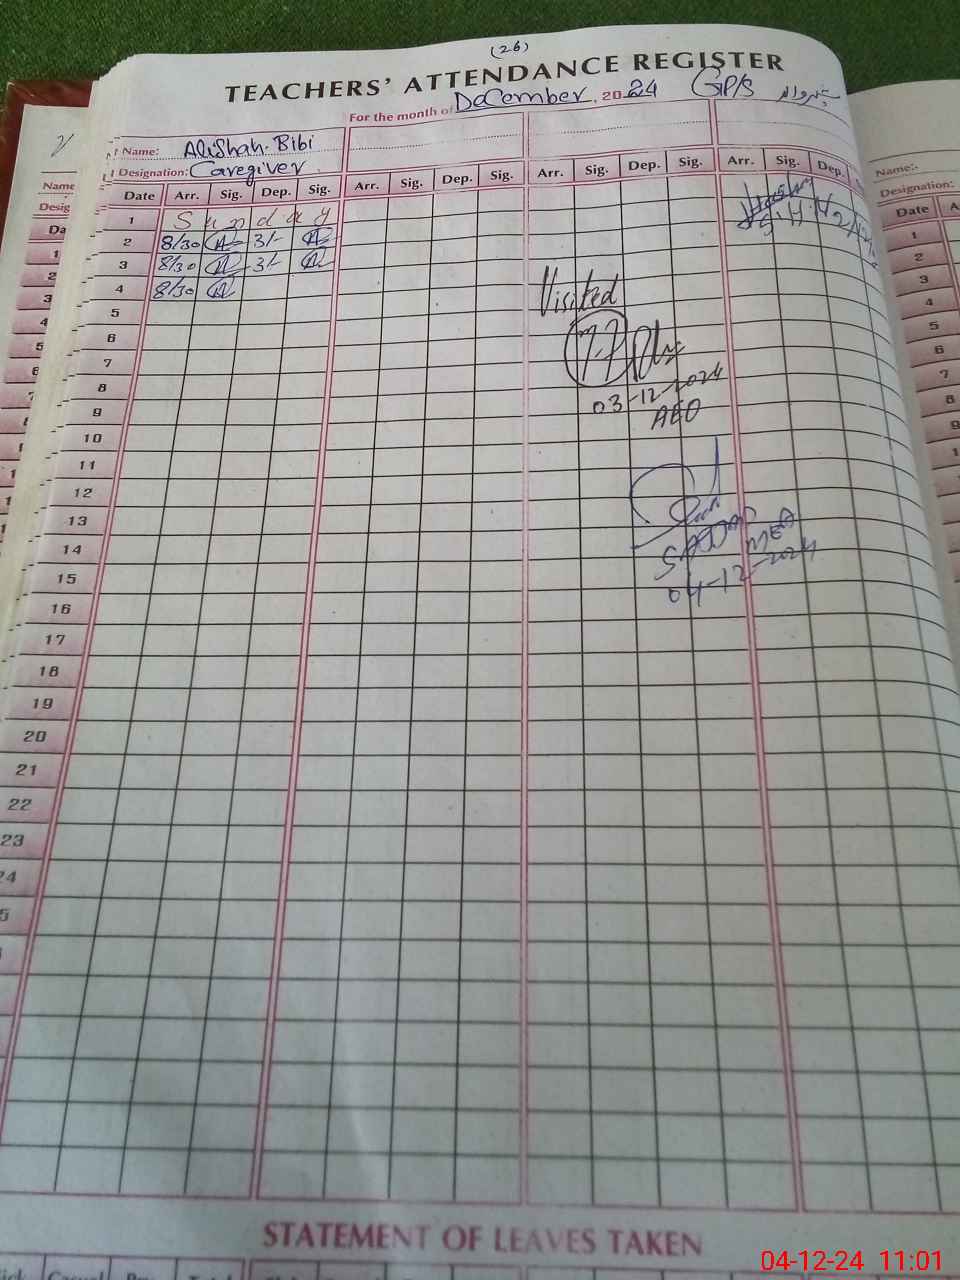 (26)
TEACHERS' ATTENDANCE REGISTER
For the month of DaCember, 2024 GP/S
Name: Alishah. Bibi
Designation: Caregiver
Date Arr. Sig. Dep. Sig. Arr. Sig. Dep. Sig. Arr. Sig. Dep. Sig. Arr. Sig. Dep.
1 Sunday
2 8/30 3/-
3 8/30 3/-
4 8/30
5
6
7
8
9
10
11
12
13
14
15
16
17
18
19
20
21
22
23
24
Visited
03-12-2024
AEO
MEA
04-12-2024
STATEMENT OF LEAVES TAKEN
Casual
Name
Desig
Da
1
2
3
4
5
6
Name:-
Designation:
Date A
1
2
3
4
5
6
7
8
9
10
11
12
13
04-12-24 11:01